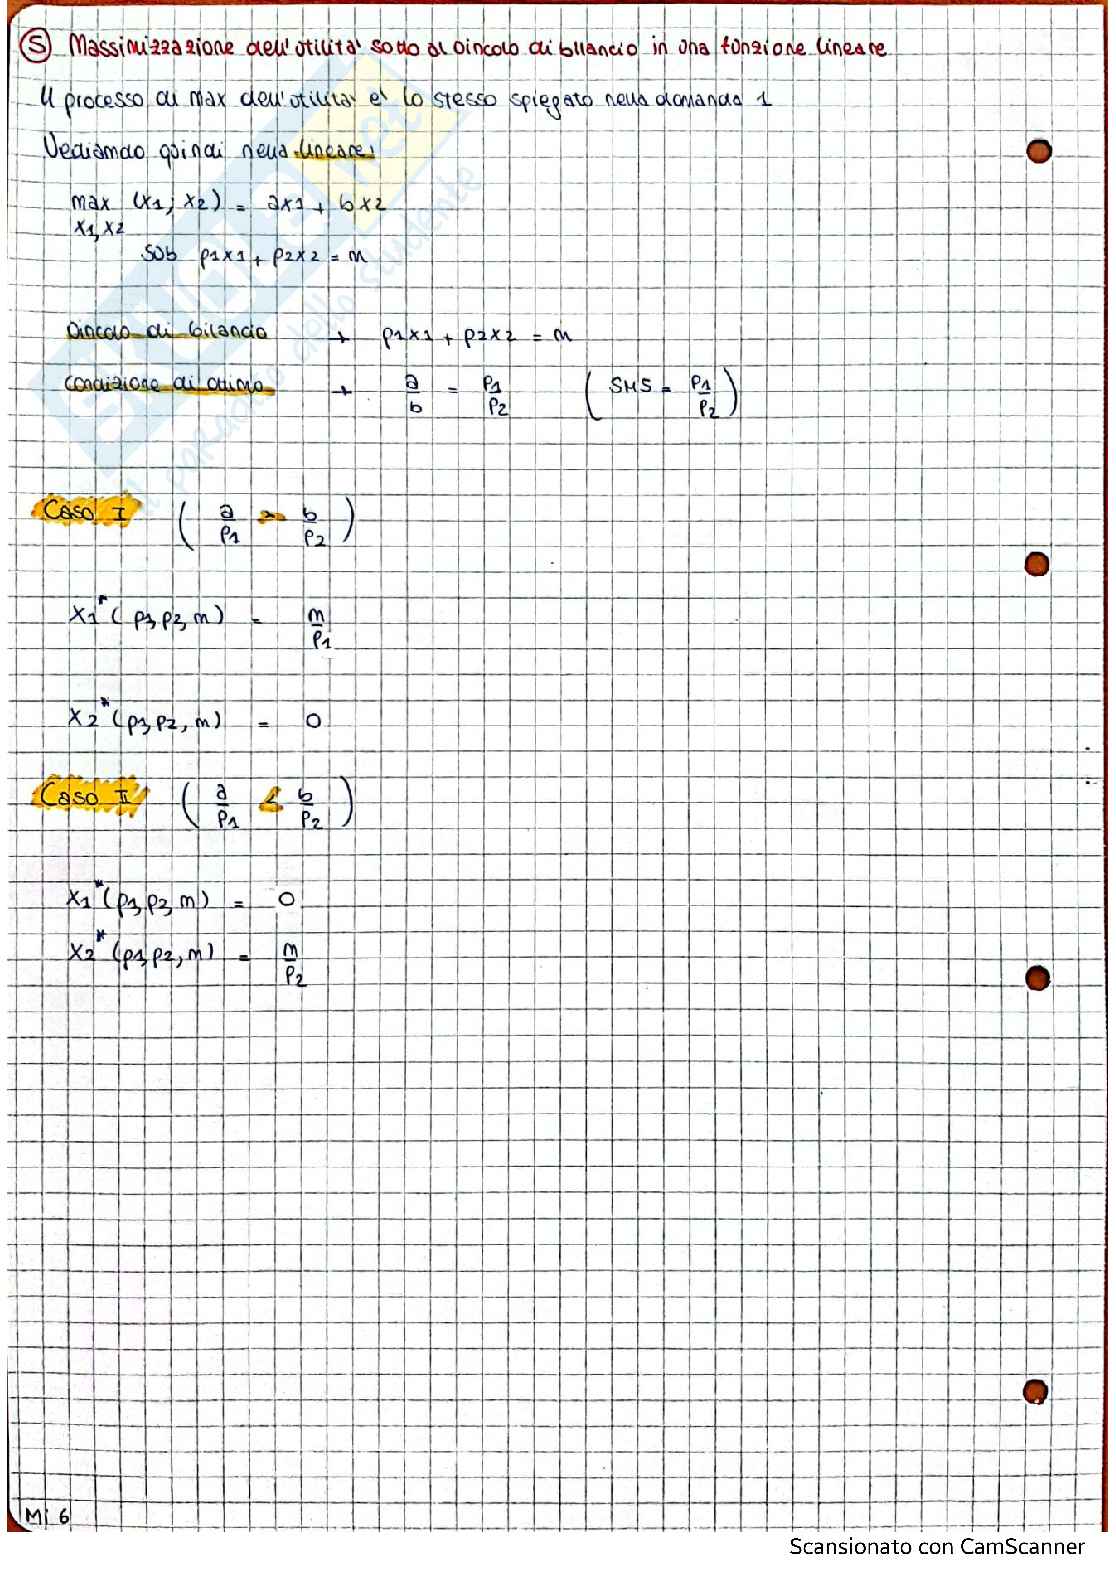 5 Massimizzazione dell'utilità sotto al vincolo di bilancio in una funzione lineare
Il processo di max dell'utilità è lo stesso spiegato nella domanda 1
Vediamolo quindi nella lineare:
max (x1; x2) = ax1 + bx2
x1, x2
sub p1x1 + p2x2 = m
vincolo di bilancio → p1x1 + p2x2 = m
condizione di ottimo → a/b = p1/p2 (SMS = p1/p2)
Caso I (a/p1 > b/p2)
x1* (p1, p2, m) = m/p1
x2* (p1, p2, m) = 0
Caso II (a/p1 < b/p2)
x1* (p1, p2, m) = 0
x2* (p1, p2, m) = m/p2
Mi 6
Scansionato con CamScanner